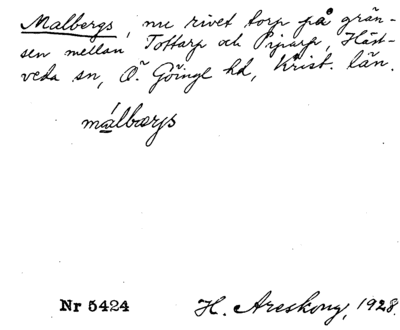 Malbergs, nu rivet torp på grän-
sen mellan Tottarp och Piparp, Häst-
veda sn, Ö. Göinge hd, Krist. län.
málbærgs
Nr 5424
H. Areskoug, 1928.